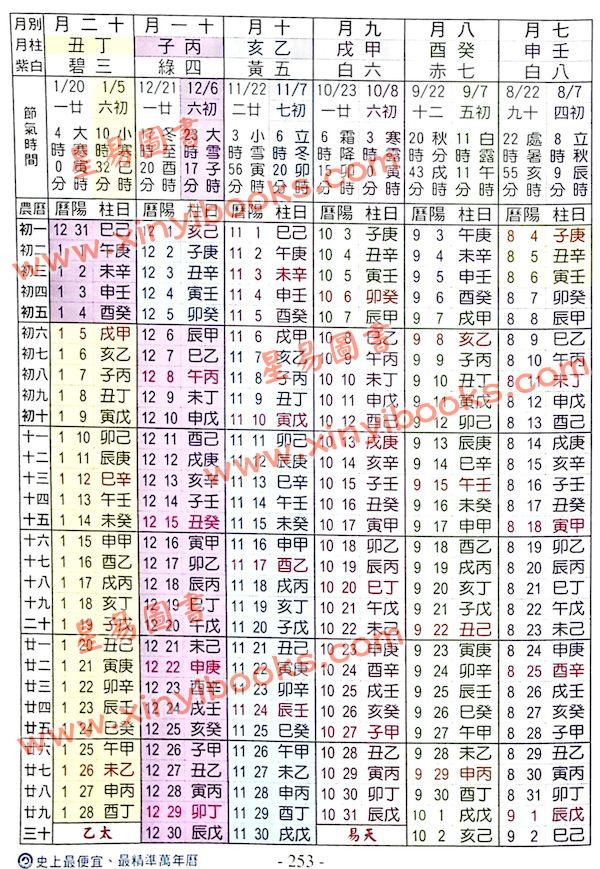 月別 月二十 月一十 月十 月九 月八 月七
月柱 丑丁 子丙 亥乙 戌甲 酉癸 申壬
紫白 碧三 綠四 黃五 白六 赤七 白八
節氣時間
1/20 1/5 12/21 12/6 11/22 11/7 10/23 10/8 9/22 9/7 8/22 8/7
一廿 六初 一廿 六初 二廿 七初 一廿 六初 十二 五初 九十 四初
4大 10小 17冬 23大 3小 6立 6霜 3寒 20秋 11白 22處 8立
時寒 時寒 時至 時雪 時雪 時冬 時降 時露 時分 時露 時暑 時秋
0寅 32巳 20酉 17子 56寅 20卯 15卯 0寅 43戌 11午 55亥 9辰
分時 分時 分時 分時 分時 分時 分時 分時 分時 分時 分時 分時
農曆 曆陽 柱日 曆陽 柱日 曆陽 柱日 曆陽 柱日 曆陽 柱日 曆陽 柱日
初一 12 31 巳己 12 1 亥己 11 1 巳己 10 3 子庚 9 3 午庚 8 4 子庚
初二 1 1 午庚 12 2 子庚 11 2 午庚 10 4 丑辛 9 4 未辛 8 5 丑辛
初三 1 2 未辛 12 3 丑辛 11 3 未辛 10 5 寅壬 9 5 申壬 8 6 寅壬
初四 1 3 申壬 12 4 寅壬 11 4 申壬 10 6 卯癸 9 6 酉癸 8 7 卯癸
初五 1 4 酉癸 12 5 卯癸 11 5 酉癸 10 7 辰甲 9 7 戌甲 8 8 辰甲
初六 1 5 戌甲 12 6 辰甲 11 6 戌甲 10 8 巳乙 9 8 亥乙 8 9 巳乙
初七 1 6 亥乙 12 7 巳乙 11 7 亥乙 10 9 午丙 9 9 子丙 8 10 午丙
初八 1 7 子丙 12 8 午丙 11 8 子丙 10 10 未丁 9 10 丑丁 8 11 未丁
初九 1 8 丑丁 12 9 未丁 11 9 丑丁 10 11 申戊 9 11 寅戊 8 12 申戊
初十 1 9 寅戊 12 10 申戊 11 10 寅戊 10 12 酉己 9 12 卯己 8 13 酉己
十一 1 10 卯己 12 11 酉己 11 11 卯己 10 13 戌庚 9 13 辰庚 8 14 戌庚
十二 1 11 辰庚 12 12 戌庚 11 12 辰庚 10 14 亥辛 9 14 巳辛 8 15 亥辛
十三 1 12 巳辛 12 13 亥辛 11 13 巳辛 10 15 子壬 9 15 午壬 8 16 子壬
十四 1 13 午壬 12 14 子壬 11 14 午壬 10 16 丑癸 9 16 未癸 8 17 丑癸
十五 1 14 未癸 12 15 丑癸 11 15 未癸 10 17 寅甲 9 17 申甲 8 18 寅甲
十六 1 15 申甲 12 16 寅甲 11 16 申甲 10 18 卯乙 9 18 酉乙 8 19 卯乙
十七 1 16 酉乙 12 17 卯乙 11 17 酉乙 10 19 辰丙 9 19 戌丙 8 20 辰丙
十八 1 17 戌丙 12 18 辰丙 11 18 戌丙 10 20 巳丁 9 20 亥丁 8 21 巳丁
十九 1 18 亥丁 12 19 巳丁 11 19 亥丁 10 21 午戊 9 21 子戊 8 22 午戊
二十 1 19 子戊 12 20 午戊 11 20 子戊 10 22 未己 9 22 丑己 8 23 未己
廿一 1 20 丑己 12 21 未己 11 21 丑己 10 23 申庚 9 23 寅庚 8 24 申庚
廿二 1 21 寅庚 12 22 申庚 11 22 寅庚 10 24 酉辛 9 24 卯辛 8 25 酉辛
廿三 1 22 卯辛 12 23 酉辛 11 23 卯辛 10 25 戌壬 9 25 辰壬 8 26 戌壬
廿四 1 23 辰壬 12 24 戌壬 11 24 辰壬 10 26 亥癸 9 26 巳癸 8 27 亥癸
廿五 1 24 巳癸 12 25 亥癸 11 25 巳癸 10 27 子甲 9 27 午甲 8 28 子甲
廿六 1 25 午甲 12 26 子甲 11 26 午甲 10 28 丑乙 9 28 未乙 8 29 丑乙
廿七 1 26 未乙 12 27 丑乙 11 27 未乙 10 29 寅丙 9 29 申丙 8 30 寅丙
廿八 1 27 申丙 12 28 寅丙 11 28 申丙 10 30 卯丁 9 30 酉丁 8 31 卯丁
廿九 1 28 酉丁 12 29 卯丁 11 29 酉丁 10 31 辰戊 10 1 戌戊 9 1 辰戊
三十 乙太 12 30 辰戊 11 30 戌戊 易天 10 2 亥己 9 2 巳己
史上最便宜、最精準萬年曆
- 253 -
星易圖書
www.xinyibooks.com
星易圖書
www.xinyibooks.com
星易圖書
www.xinyibooks.com